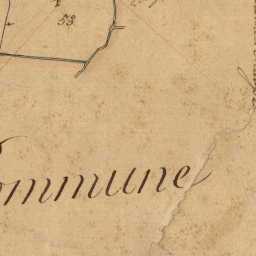 53
Commune